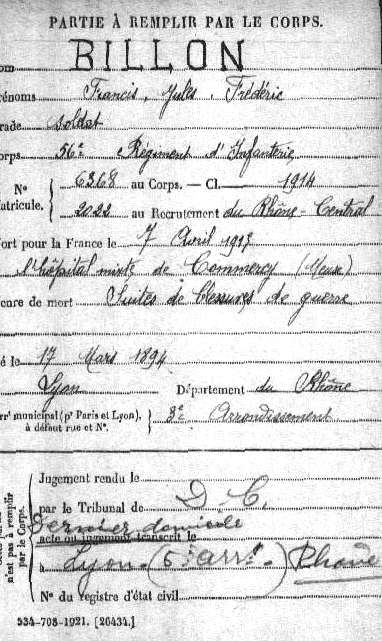 PARTIE À REMPLIR PAR LE CORPS.
om BILLON
rénoms Francis, Jules, Frédéric
rade Soldat
orps 56e Régiment d'Infanterie
N° 6368 au Corps. — Cl. 1914
atricule. 2022 au Recrutement du Rhône-Central
ort pour la France le 7 Avril 1915
l'hôpital mixte de Commercy (Meuse)
enre de mort Suites de blessures de guerre
é le 17 Mars 1894
Lyon Département du Rhône
arr' municipal (pr Paris et Lyon), 3e Arrondissement
à défaut rue et N°.
Jugement rendu le
par le Tribunal de D C.
Dernier domicile
acte ou jugement transcrit le
à Lyon (5e arrt) Rhône
N° du registre d'état civil
n'est pas à remplir
par le Corps.
534-708-1921. [26434.]